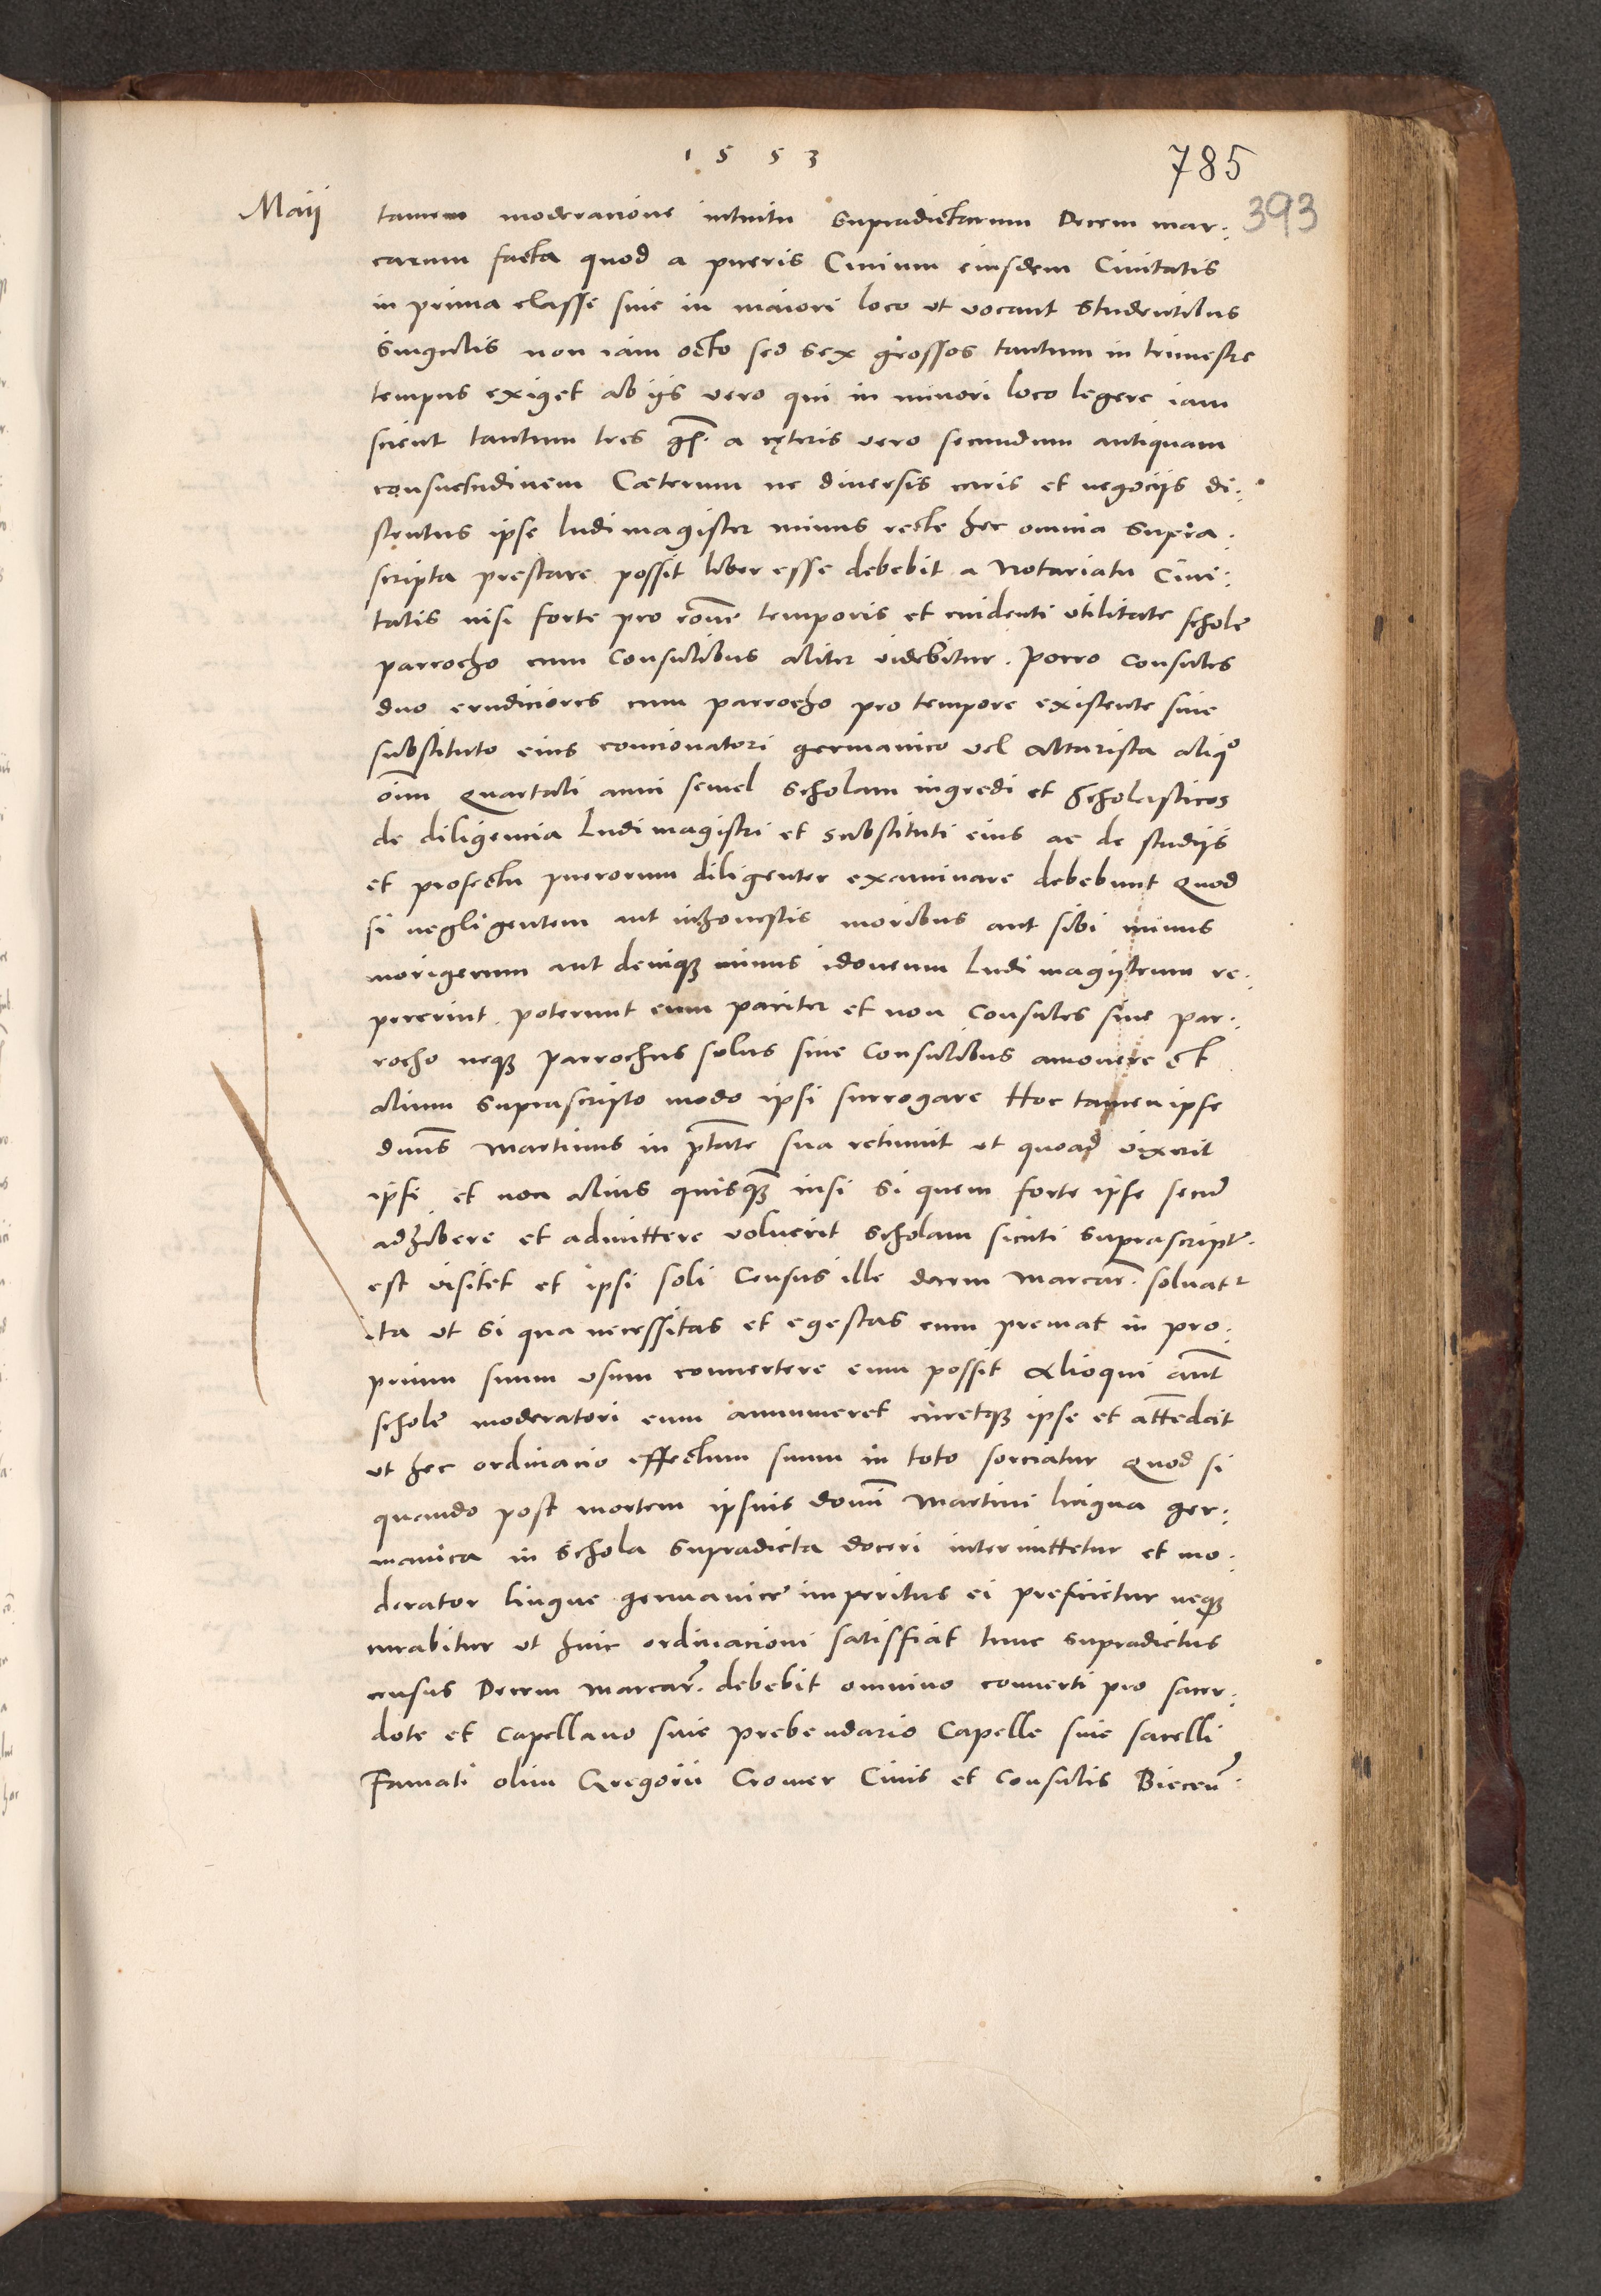 1553
785
393
Maij
tamen moderacione intuitu supradictarum Decem mar:
carum facta quod a pueris Ciuium eiusdem Ciuitatis
in prima classe siue in maiori loco ut vocant studentibus
singulis non iam octo sed sex grossos tantum in trimestre
tempus exiget ab ijs vero qui in minori loco legere iam
scient tantum tres gr. a cęteris vero secundum antiquam
consuetudinem Cæterum ne diuersis curis et negocijs di:
stentus ipse ludi magister minus recte hec omnia supra:
scripta prestare possit liber esse debebit a Notariatu Ciui:
tatis nisi forte pro rone temporis et euidenti utilitate scholę
parrocho cum Consulibus aliter videbitur. Porro Consules
duo erudiciores cum parrocho pro tempore existente siue
substituto eius concionatori germanico vel altarista aliqo
oim Quartali anni semel scholam ingredi et Scholasticos
de diligencia Ludi magistri et substituti eius ac de studijs
et profectu puerorum diligenter examinare debebunt Quod
si negligentem aut inhonestis moribus aut sibi minus
morigerum aut deniq3 minus idoneum Ludi magistrum re:
pererint. poterunt eum pariter et non Consules sine par:
rocho neq3 Parrochus solus sine Consulibus amouere Et
alium suprascripto modo ipsi surrogare Hoc tamen ipse
dnus Martinus in ptate sua retinuit ut quoad vixerit
ipsi et non alius quisq3 nisi si quem forte ipse secum
adhibere et admittere voluerit Scholam sicuti suprascriptu
est visitet et ipsi soli Census ille decem Marcar. soluatr
ita ut si qua necessitas et egestas eum premat in pro:
prium suum usum conuertere eum possit Alioqui aut
scholę moderatori eum annumeret curetq3 ipse et attendat
ut hec ordinacio effectum suum in toto sorciatur Quod si
quando post mortem ipsius domi Martini lingua ger:
manica in schola supradicta doceri intermittetur et mo:
derator lingue germanicę imperitus ei preficietur neq3
curabitur ut huic ordinacioni satisfiat tunc supradictus
census Decem Marcar. debebit omnino conuerti pro sacer:
dote et Capellano siue prebendario Capelle siue sacelli
Famati olim Gregorii Cromer Ciuis et Consulis Biecen: